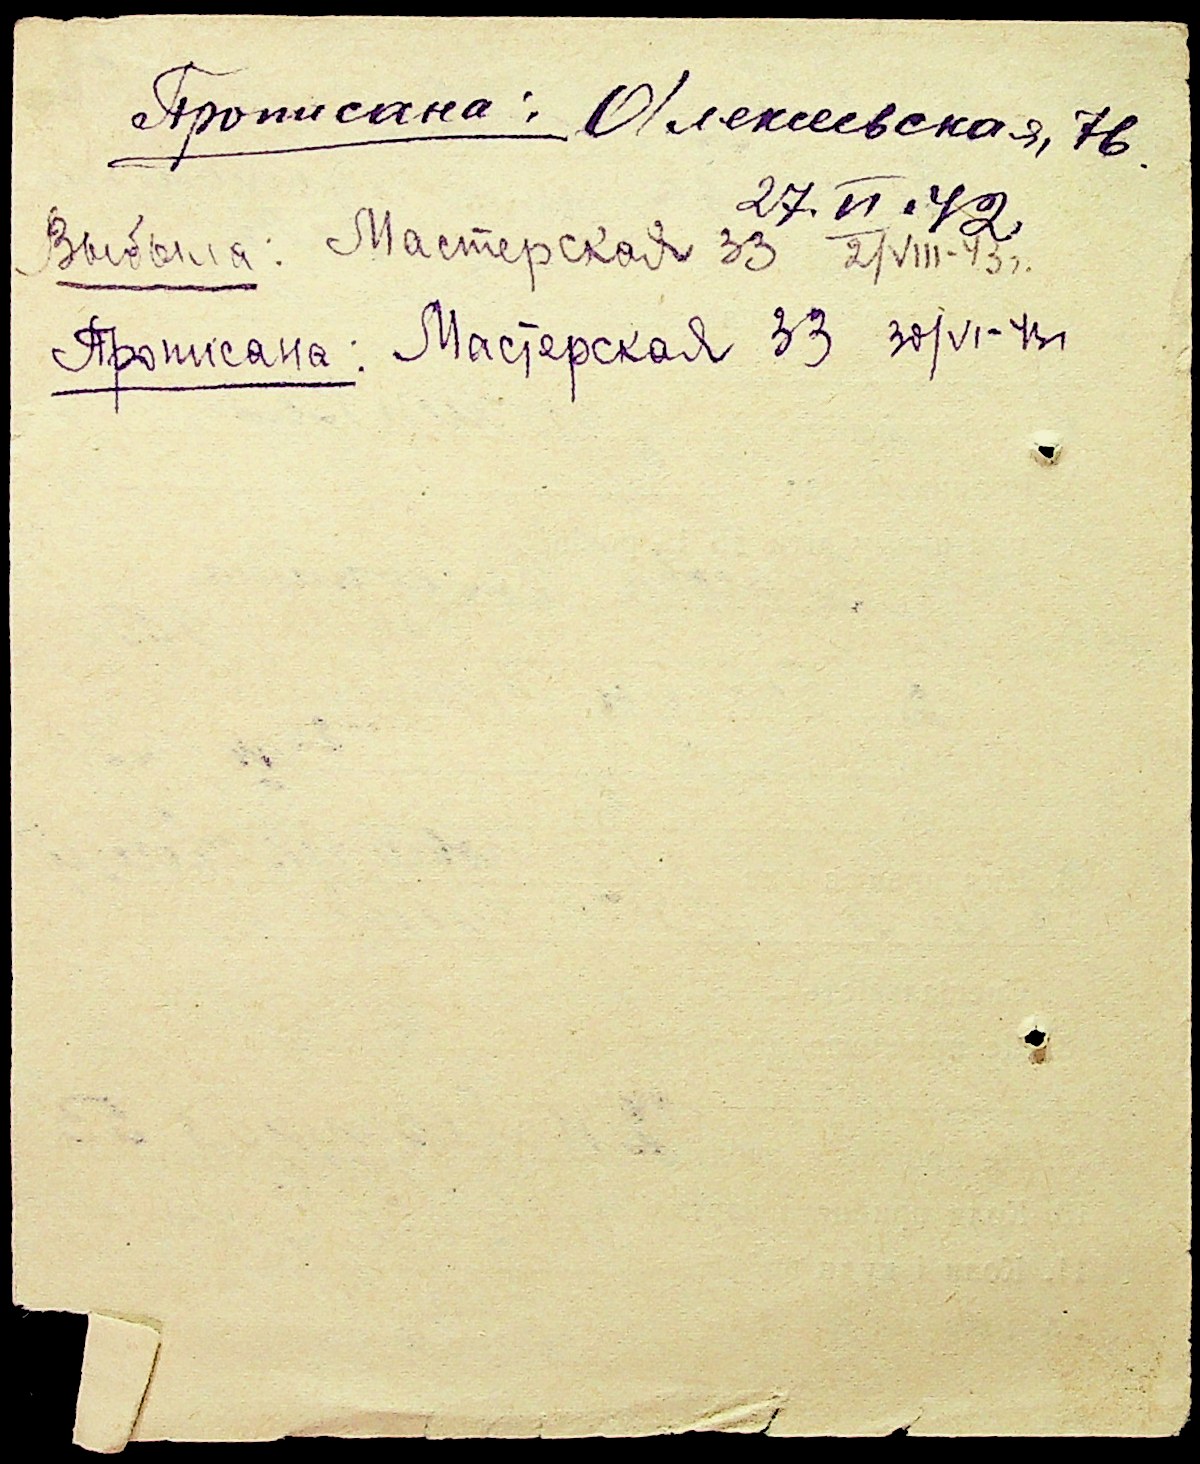 Прописана: Алексеевская, 76.
27.VI.42.
Выбыла: Мастерская 33 2/VIII-43г.
Прописана: Мастерская 33 30/VI-43г